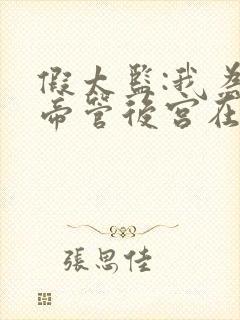 假太監:我為
帝管後宮在
張思佳